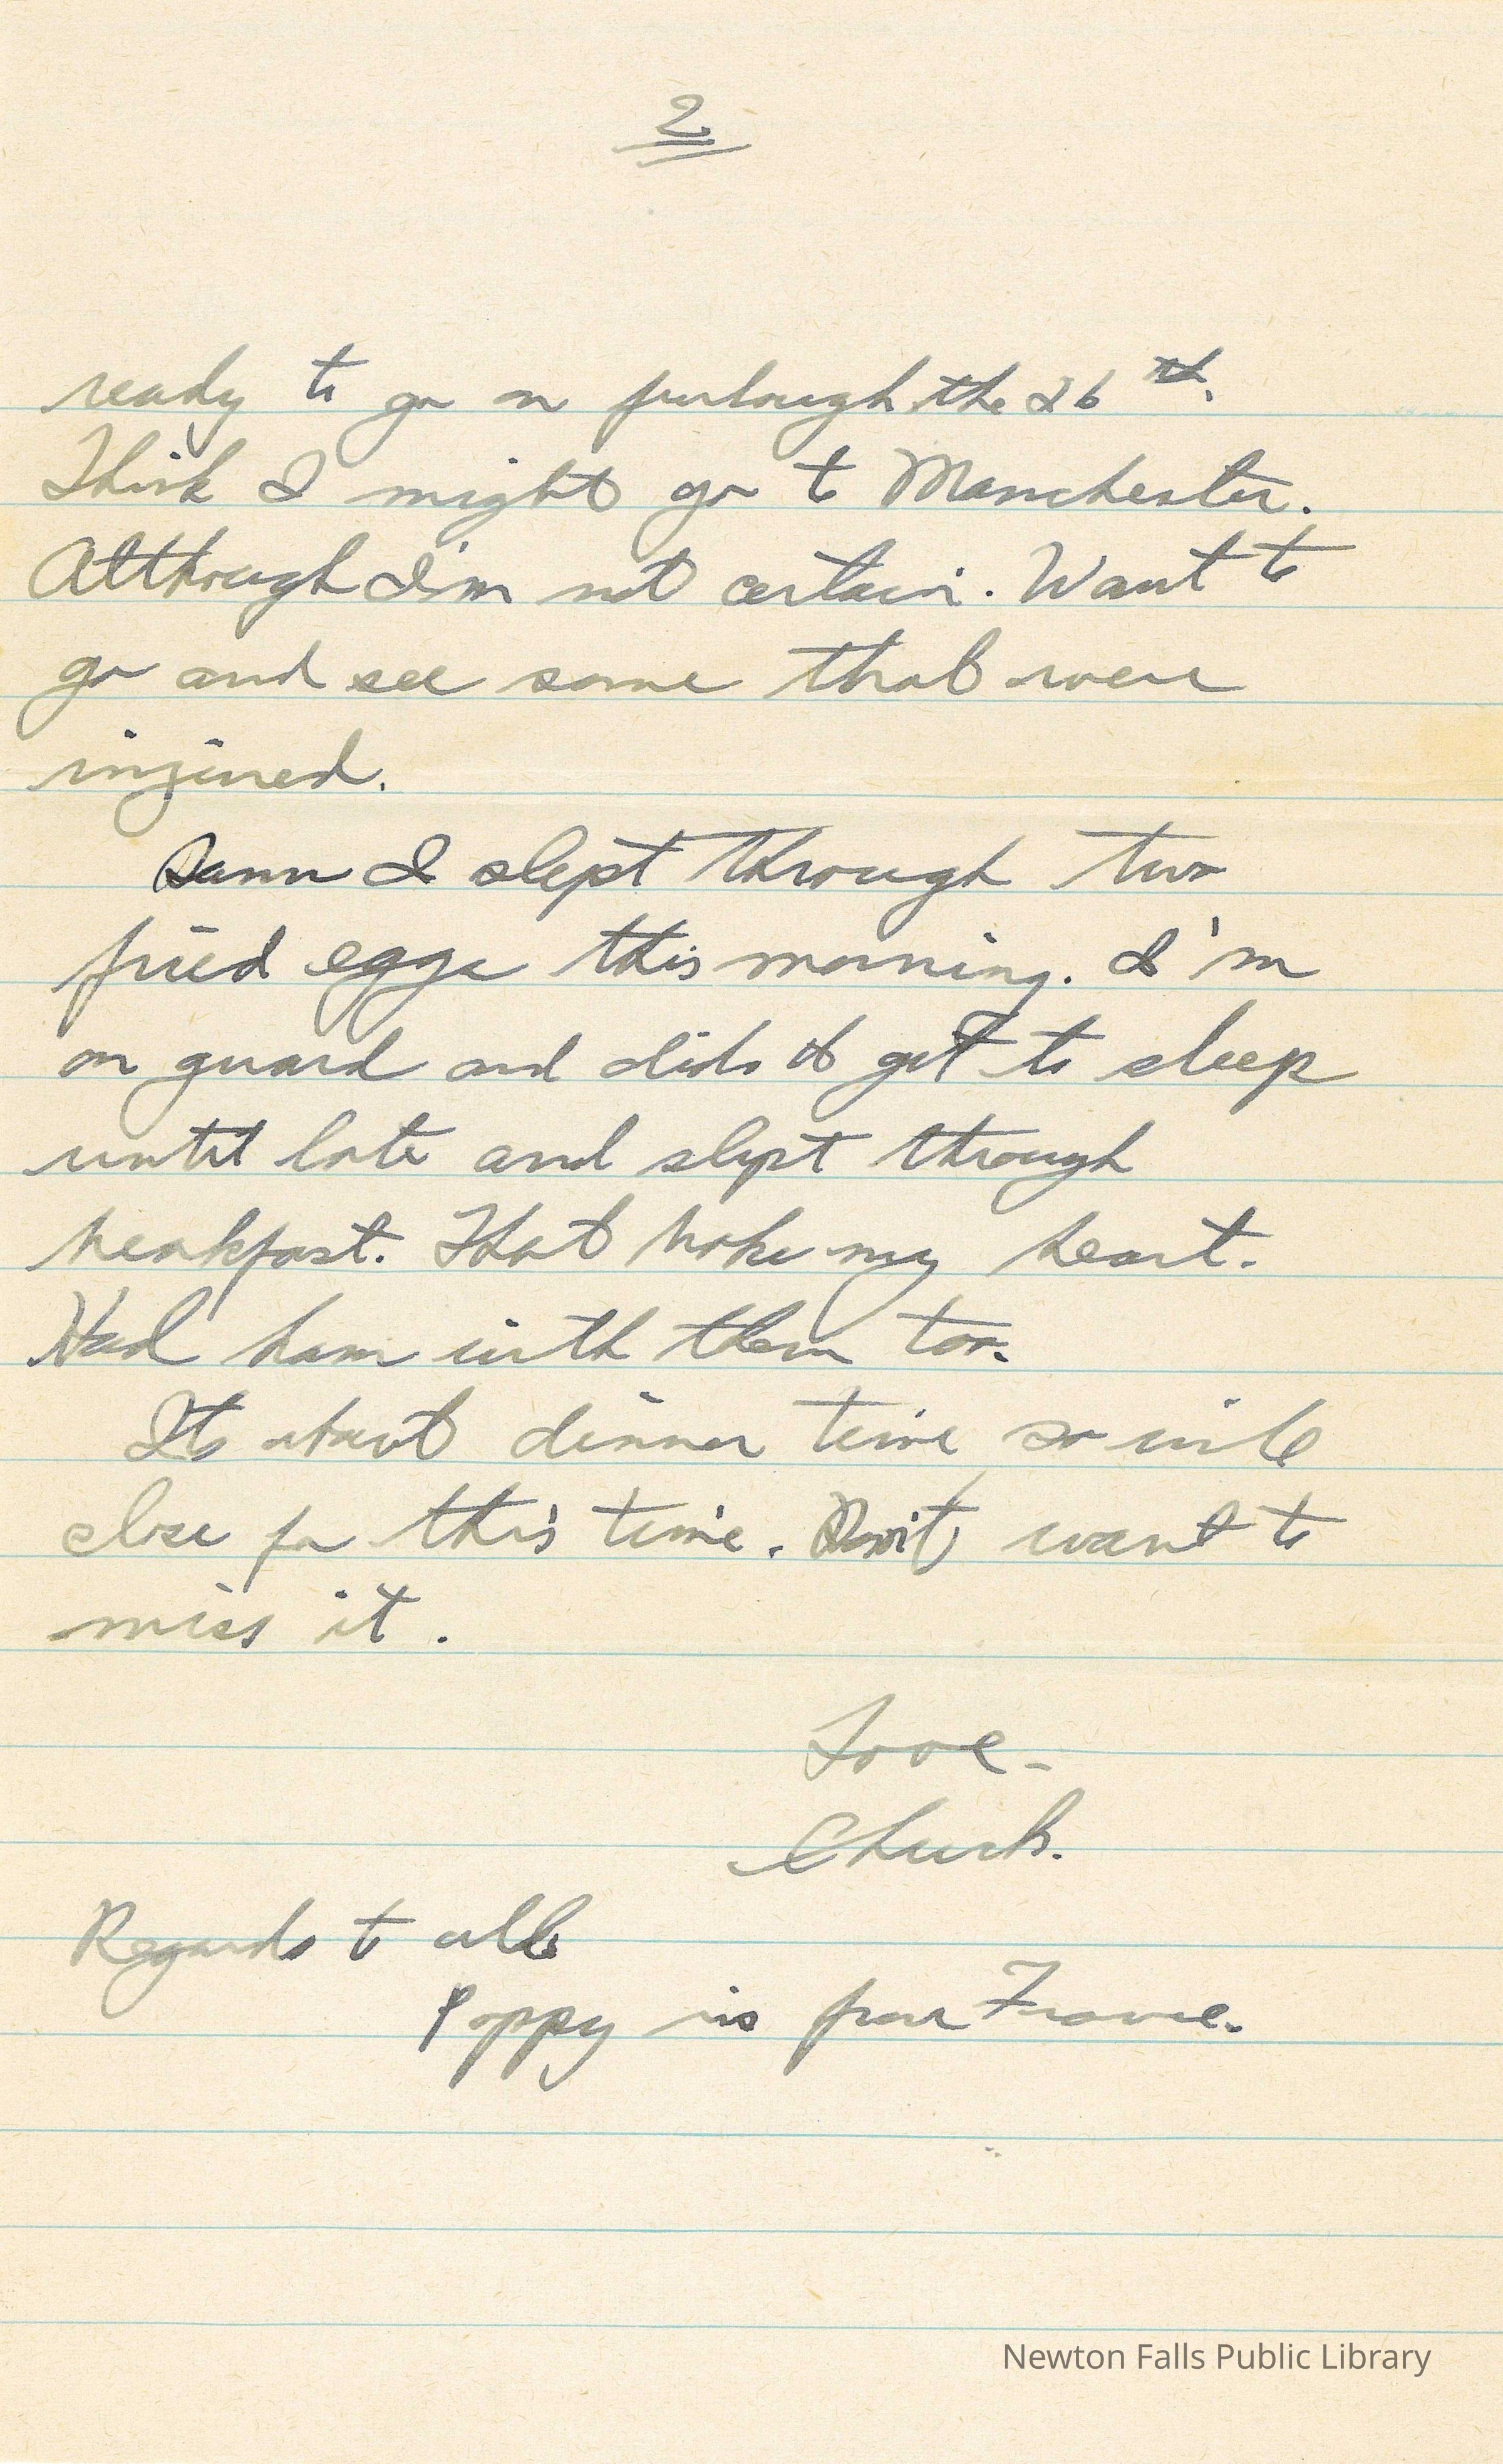 2
ready to go on furlough the 26th.
Think I might go to Manchester.
Although I'm not certain. Want to
go and see some that were
injured.
Damn I slept through two
fried eggs this morning. I'm
on guard and didn't get to sleep
until late and slept through
breakfast. That broke my heart.
Had ham with them too.
Its about dinner time so will
close for this time. Don't want to
miss it.
Love-
Chuck.
Regards to all
Poppy is from France.
Newton Falls Public Library